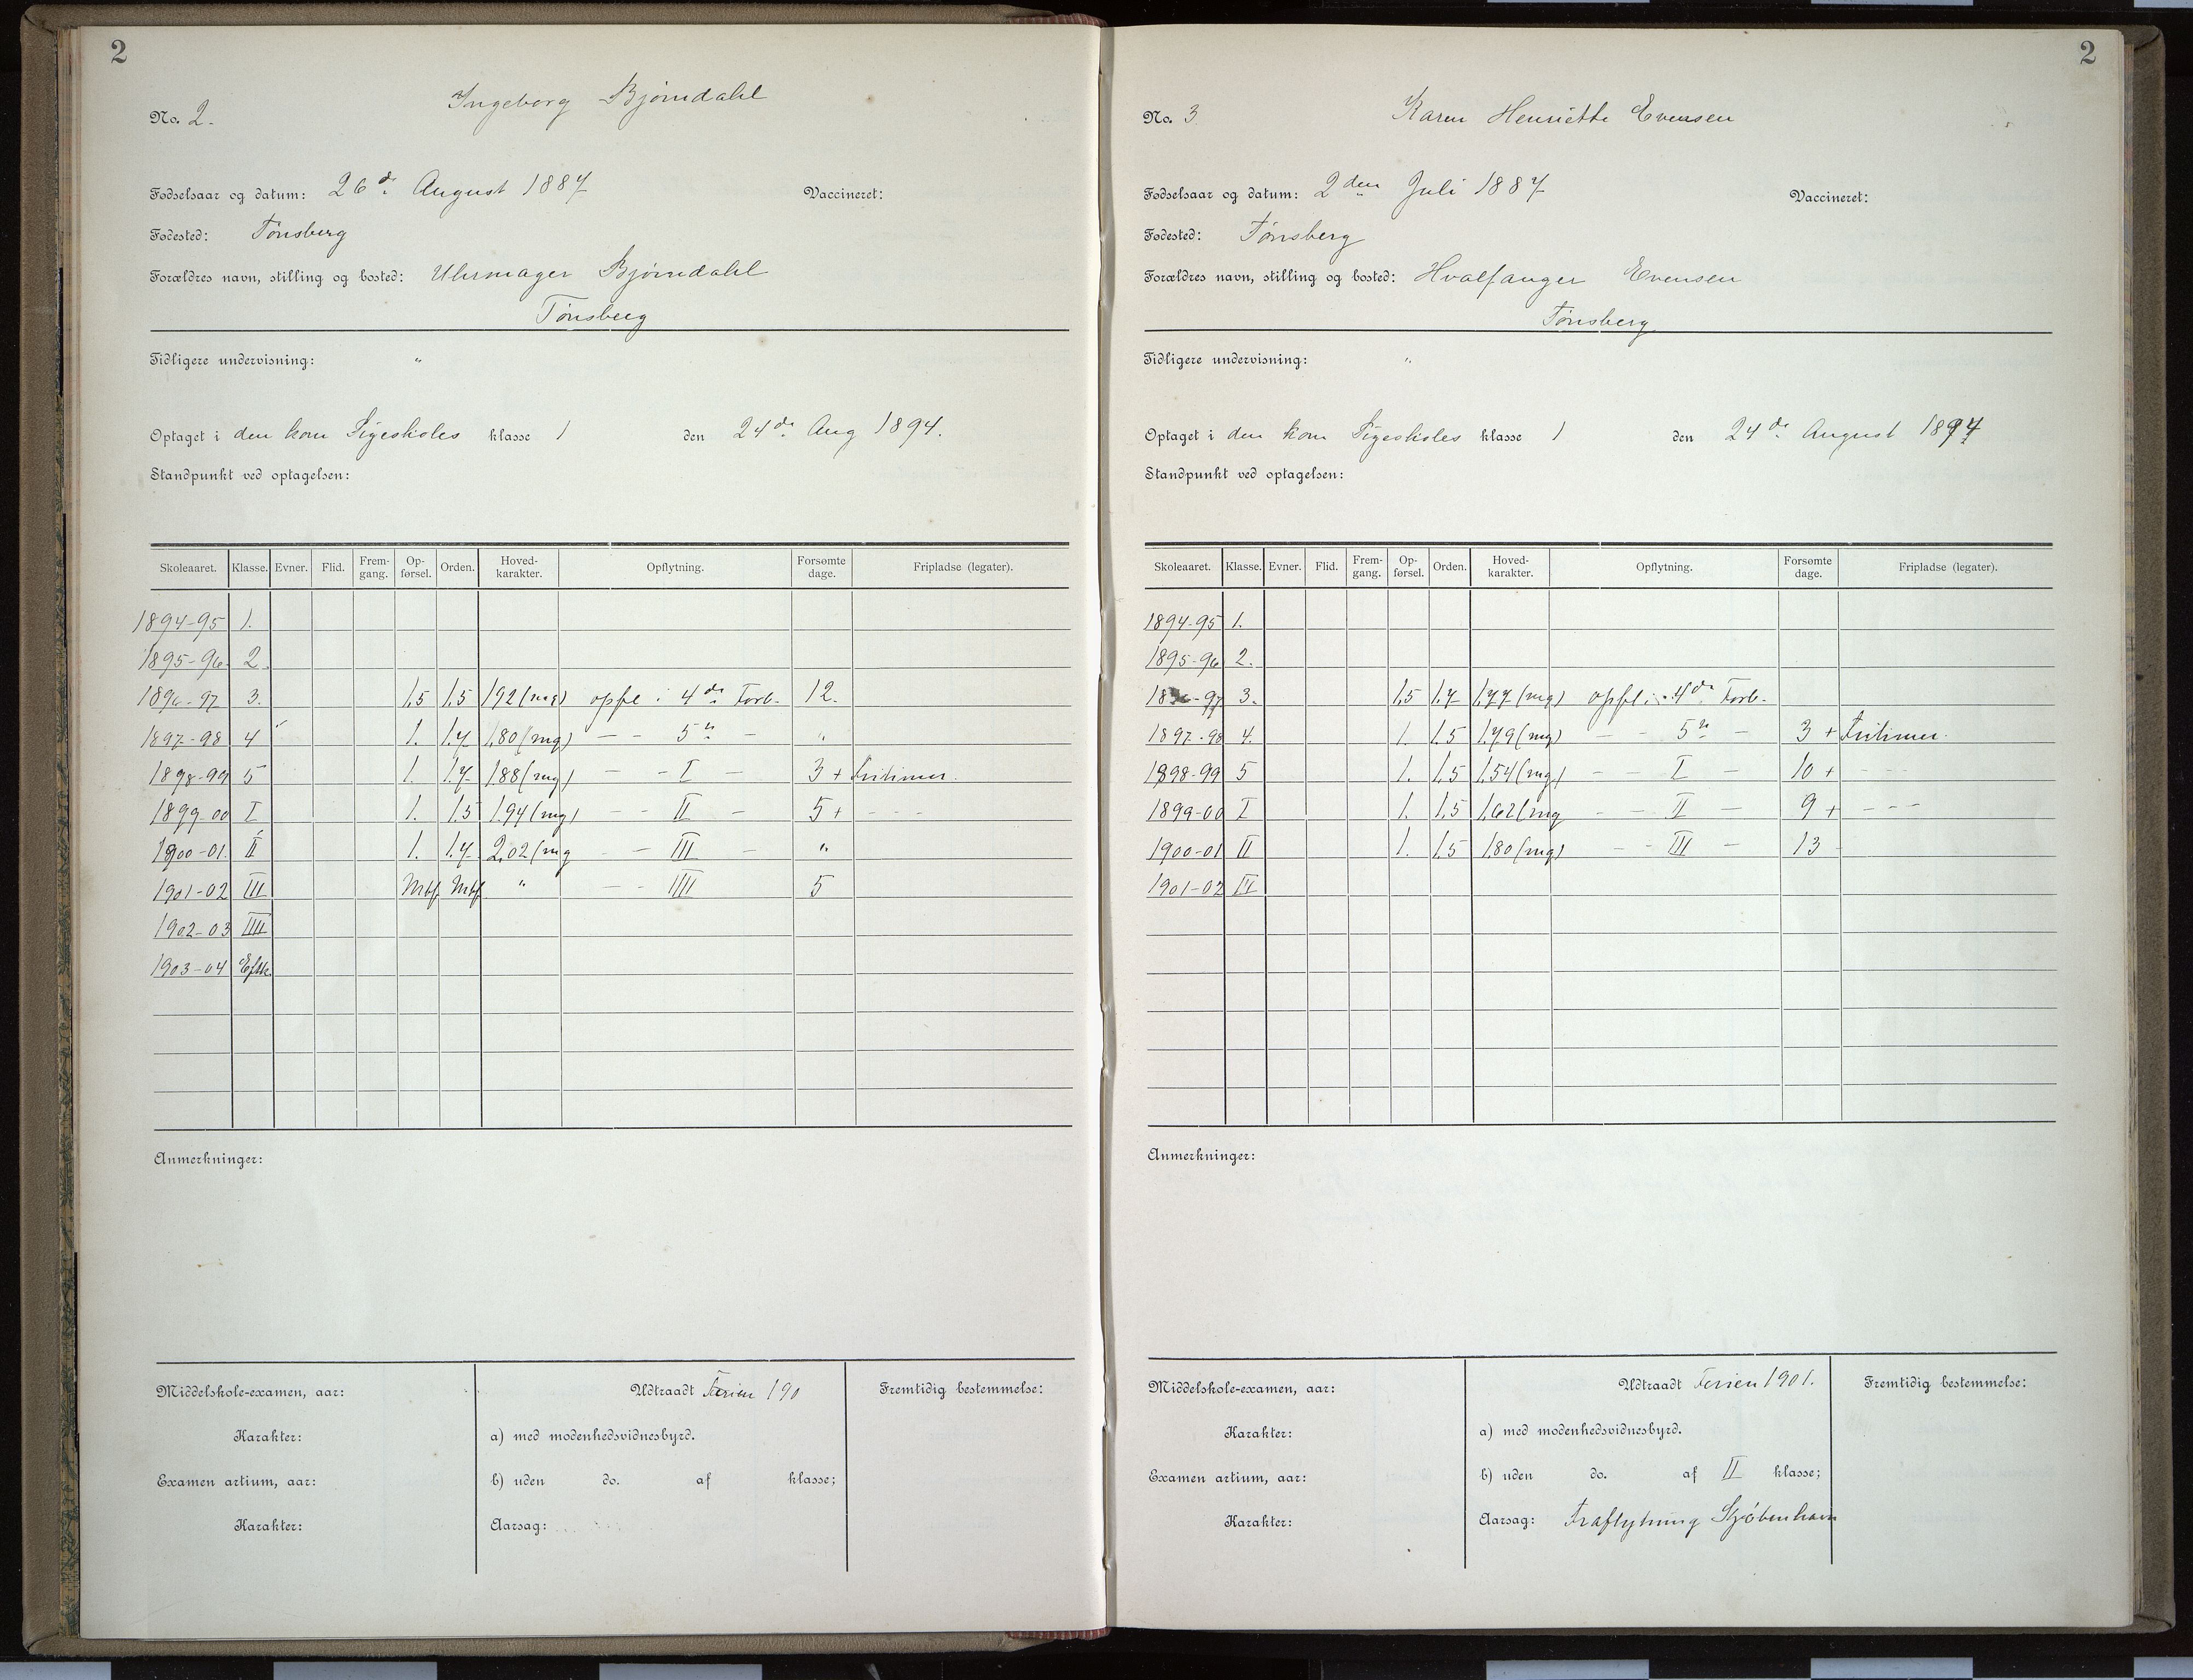 2
Ingeborg Bjørndahl
No. 2.
Fødselsaar og datum: 26de August 1887 Vaccineret:
Fødested: Tønsberg
Forældres navn, stilling og bosted: Uhrmager Bjørndahl
Tønsberg
Tidligere undervisning: "
Optaget i den kom Pigeskoles klasse 1 den 24de Aug 1894.
Standpunkt ved optagelsen:
Skoleaaret. Klasse. Evner. Flid. Frem-gang. Op-førsel. Orden. Hoved-karakter. Opflytning. Forsømte dage. Fripladse (legater).
1894-95 1.
1895-96 2.
1896-97 3. 1,5 1,5 1,92 (mg) opfl i 4de Forb. 12.
1897-98 4 1. 1,7 1,80 (mg) — — 5te — "
1898-99 5 1. 1,7 1,88 (mg) — — I — 3 + Fritimer.
1899-00 I 1. 1,5 1,94 (mg) — — II — 5 + - - -
1900-01. II 1. 1,7 2,02 (mg — — III — "
1901-02 III Mbf Mbf " — — IIII 5
1902-03 IIII
1903-04 Eftk.
Anmerkninger:
Middelskole-examen, aar: Udtraadt Ferien 190 Fremtidig bestemmelse:
Karakter: a) med modenhedsvidnesbyrd.
Examen artium, aar: b) uden do. af klasse;
Karakter: Aarsag:
2
No. 3 Karen Henriette Evensen
Fødselsaar og datum: 2den Juli 1887 Vaccineret:
Fødested: Tønsberg
Forældres navn, stilling og bosted: Hvalfanger Evensen
Tønsberg
Tidligere undervisning: "
Optaget i den kom Pigeskoles klasse 1 den 24de August 1894
Standpunkt ved optagelsen:
Skoleaaret. Klasse. Evner. Flid. Frem-gang. Op-førsel. Orden. Hoved-karakter. Opflytning. Forsømte dage. Fripladse (legater).
1894-95 1.
1895-96 2.
1896-97 3. 1,5 1,7 1,77 (mg) opfl i 4de Forb.
1897-98 4. 1. 1,5 1,79 (mg) — — 5te — 3 + Fritimer.
1898-99 5 1. 1,5 1,54 (mg) — — I — 10 + - - -
1899-00 I 1. 1,5 1,62 (mg — — II — 9 + - - -
1900-01 II 1. 1,5 1,80 (mg) — — III — 13
1901-02 III
Anmerkninger:
Middelskole-examen, aar: Udtraadt Ferien 1901. Fremtidig bestemmelse:
Karakter: a) med modenhedsvidnesbyrd.
Examen artium, aar: b) uden do. af II klasse;
Karakter: Aarsag: Fraflytning Kjøbenhavn